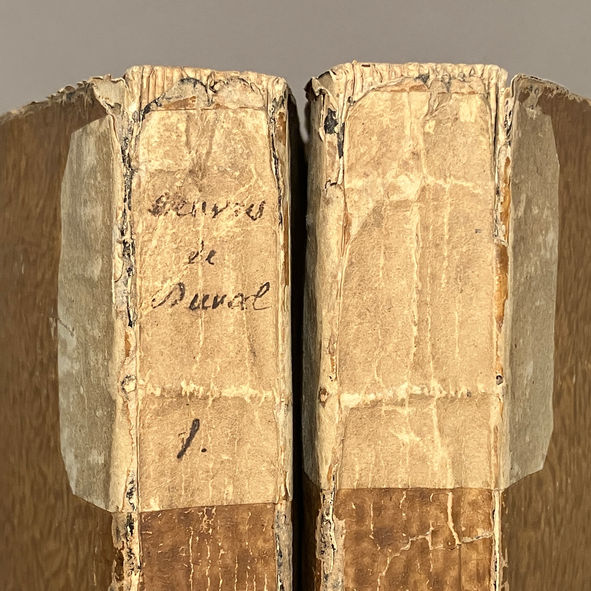 Oeuvres
de
Duval
1.